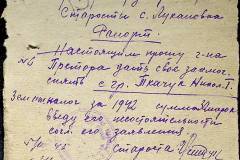 Старосты с. Лукановка
Рапорт.
№ Настоящим прошу г-на
Претора дать свое заключ.
снять с гр. Ткачук Никол.
Зем. налог за 1942 сумма
ввиду его несостоятельности
согл. его заявления
Староста